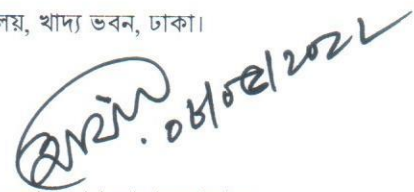 লয়, খাদ্য ভবন, ঢাকা।
০৮/০৫/২০২২